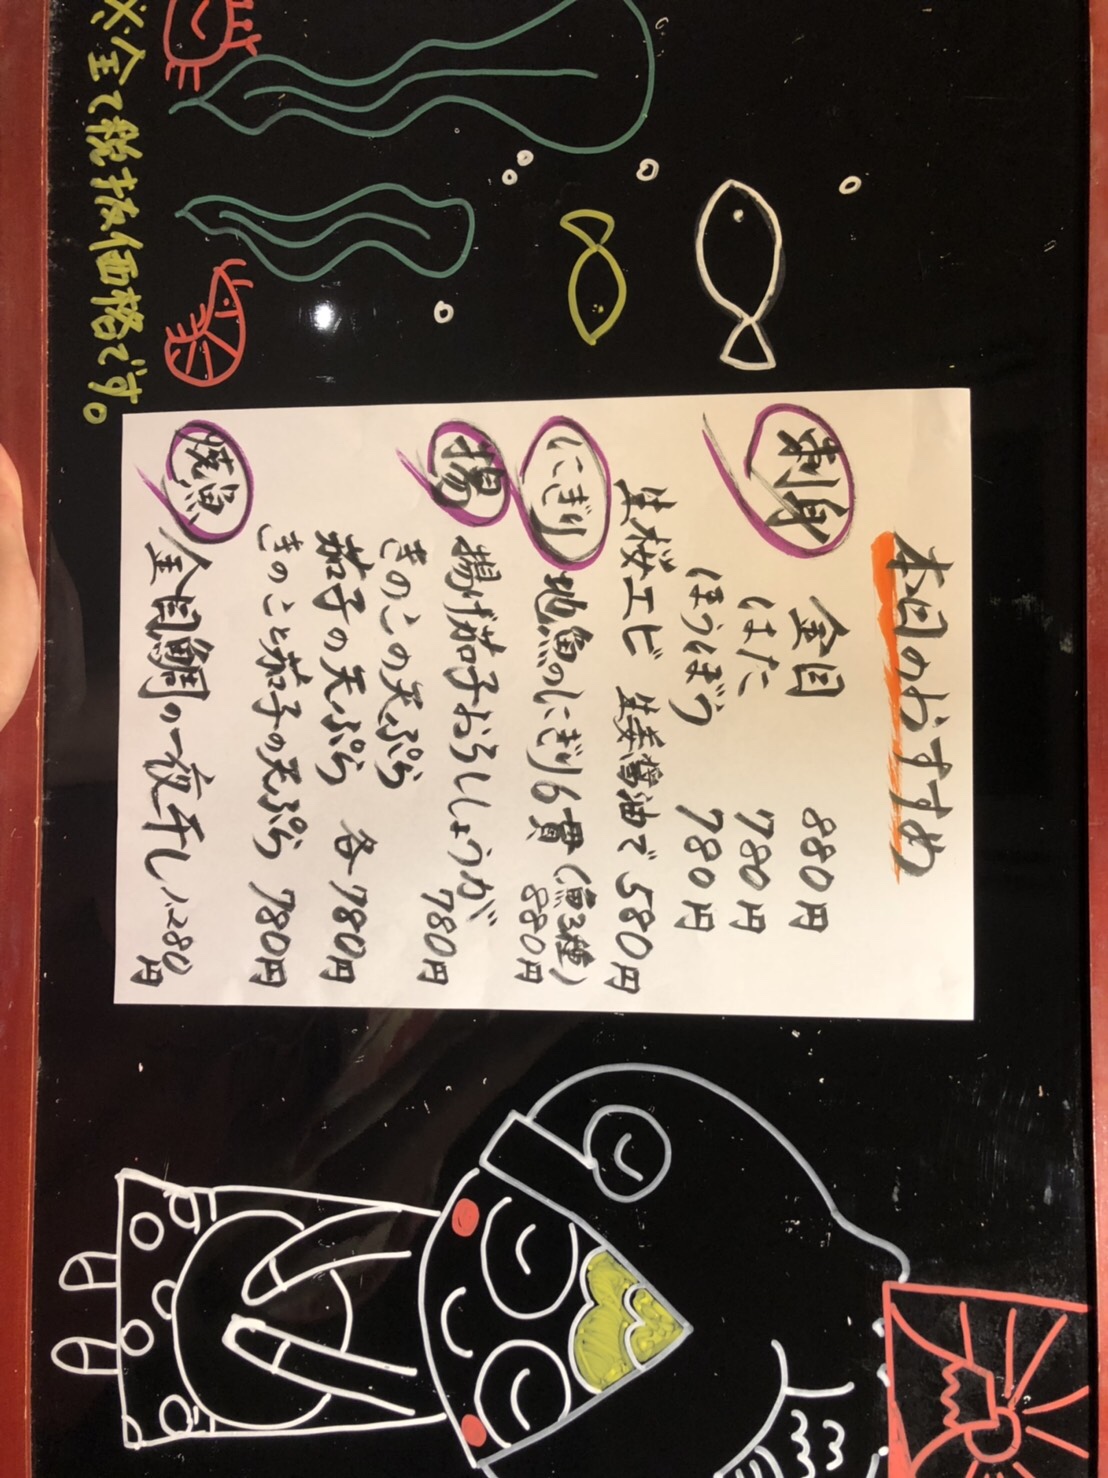 本日のおすすめ
刺身
金目 880円
はた 780円
ほうぼう 780円
生桜エビ 生姜醤油で 580円
にぎり
地魚のにぎり6貫(魚3種)
880円
揚
揚げ茄子おろししょうが
780円
きのこの天ぷら
茄子の天ぷら 各780円
きのこと茄子の天ぷら 780円
焼魚
金目鯛の一夜干し 1.280円
※全て税抜価格です。